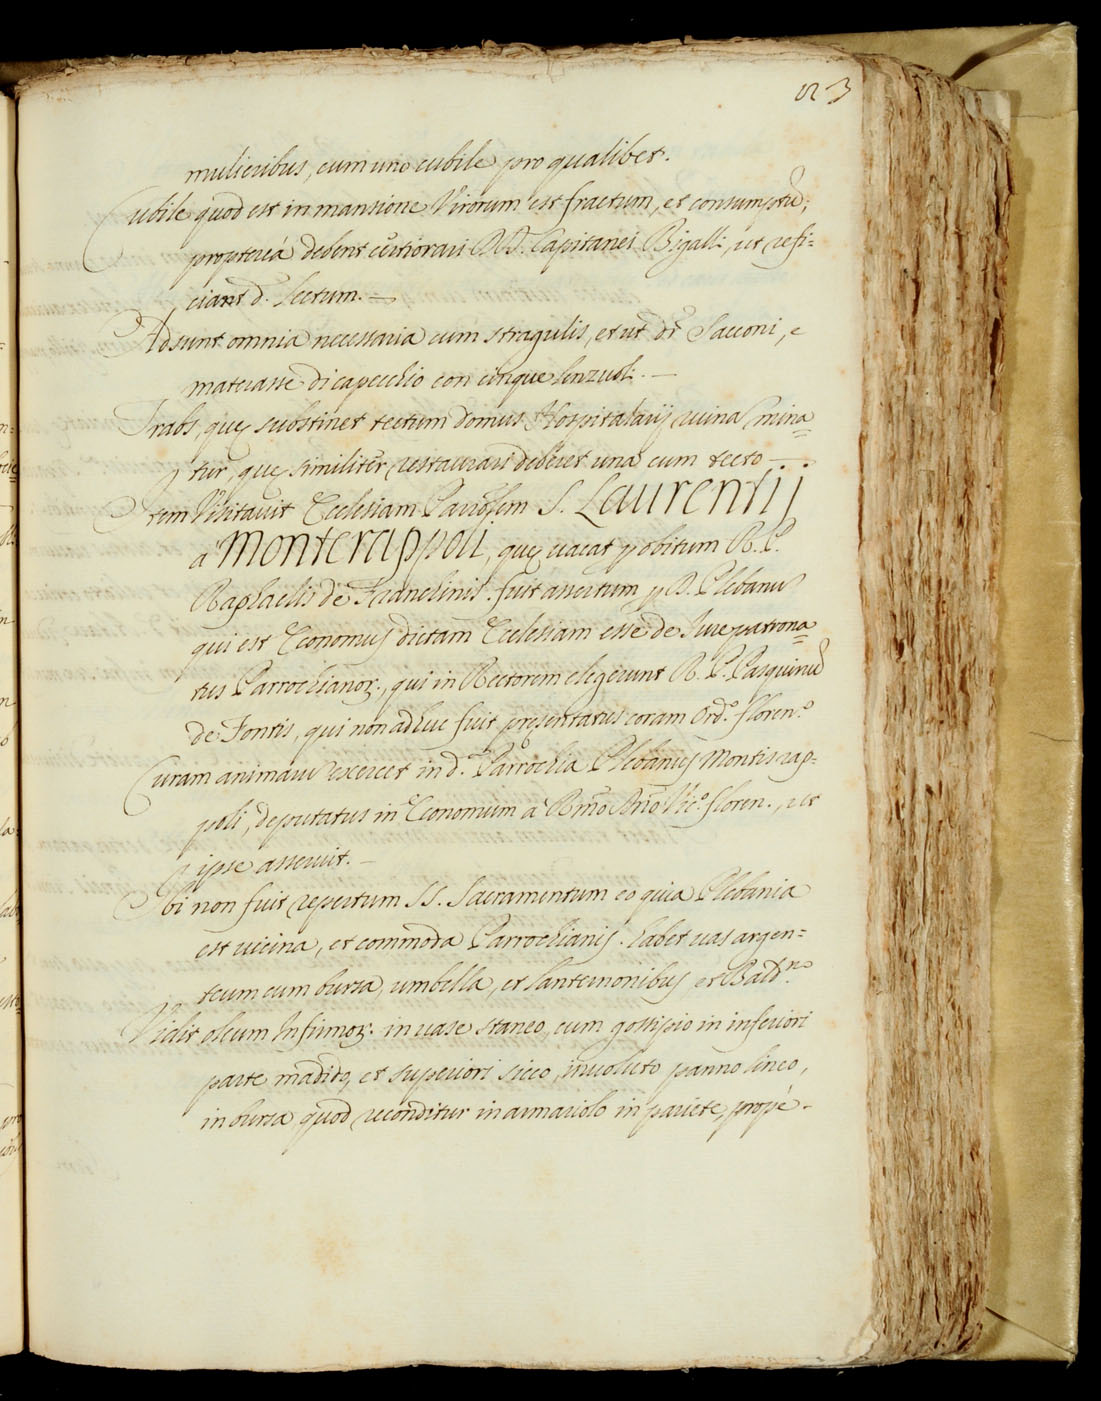 23
mulieribus, cum uno cubile pro qualibet.
Cubile quod est in mansione Virorum est fractum, et consumptũ;
proptereà debent certiorari DD. Capitanei Bigalli, ut refi=
ciant d. lectum. —
Adsunt omnia necessaria cum stragulis, et ut dr̃ Sacconi, e
materasse di capecchio con cinque lenzuoli. —
Trabs, quę substinet tectum domus Hospitalarij ruina mina
tur, quę similiter restaurari deberet una cum tecto —
Item Visitavit Ecclesiam Parro͠lem S. Laurentij
à Monterappoli, quę vacat p obitum R. P.
Raphaellis de . fuit assertum p D. Plebanũ
qui est Economus dictam Ecclesiam esse de Jure patrona
tus Parrochianoꝝ, qui in Rectorem elegerunt R. P. Pasquinũ
de Fontis, qui non adhuc fuit presentatus coram Ord.º floren.º
Curam animarũ exercet in d.ª Parrochia Plebanus Montis rap=
poli, deputatus in Economum à R̃mo D̃no Vic.º floren., ut
ipse asseruit. —
Ibi non fuit repertum SS. Sacramentum eo quia Plebania
est vicina, et commoda Parrochianis. habet vas argen=
teum cum bursa, umbella, et lanternonibus et Bald.no
Vidit oleum Infirmoꝝ in vase staneo, cum gossipio in inferiori
parte madido, et superiori sicco, involuto panno lineo,
in bursa quod reconditur in armariolo in pariete, propè -